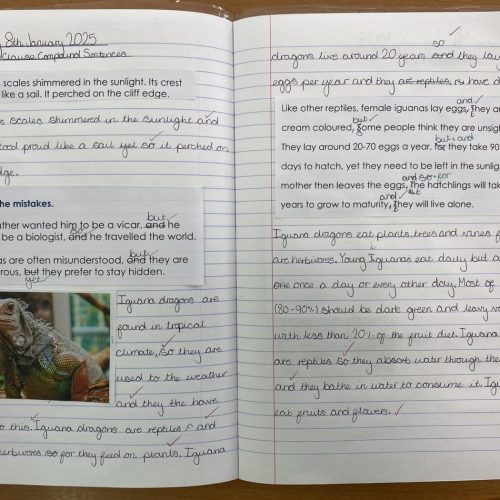 8th January 2025
Clause Compound Sentences
scales shimmered in the sunlight. Its crest
like a sail. It perched on the cliff edge.
s scales shimmered in the sunlight and
tood proud like a sail yet so it perched on
dge.
he mistakes.
ather wanted him to be a vicar, and he
but
be a biologist, and he travelled the world.
so
as are often misunderstood, and they are
but
rous, but they prefer to stay hidden.
yet
Iguana dragons are
found in tropical
climate, so they are
used to the weather
and they the have
o this. Iguana dragons are reptiles and
herbivores so for they feed on plants. Iguana
dragons live around 20 years and they lay
so
eggs per year and they are reptiles, have d
Like other reptiles, female iguanas lay eggs, they are
and
cream coloured, some people think they are unsig
but
They lay around 20-70 eggs a year. for they take 90
but and
days to hatch, yet they need to be left in the sunlig
mother then leaves the eggs, The hatchlings will tak
and so for
years to grow to maturity, They will live alone.
and but
Iguana dragons eat plants, trees and vines f
are herbivores. Young Iguanas eat daily but a
one once a day or every other day. Most of
(80-90%) should be dark green and leavy v
with less than 20% of the fruit diet. Iguana
are reptiles so they absorb water through the
and they bathe in water to consume it. Igu
eat fruits and flowers.